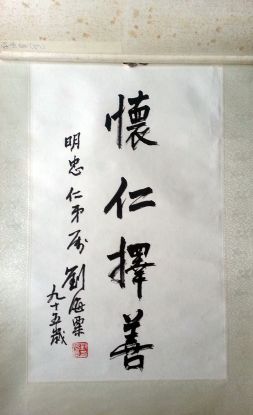 懷仁擇善
明忠仁弟屬
劉海粟
九十五歲